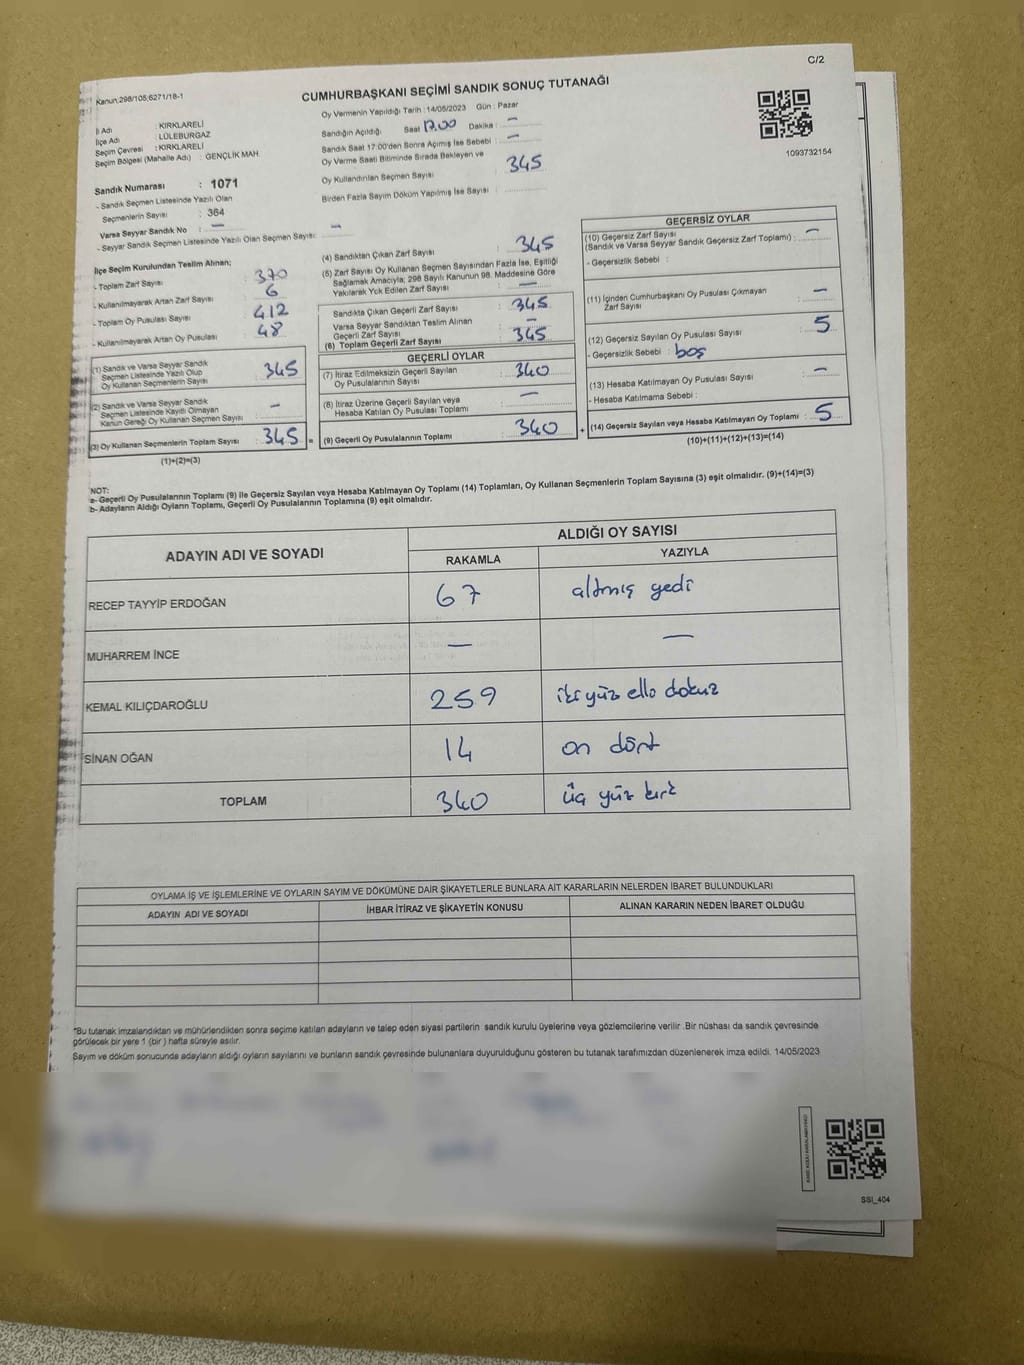 C/2
Kanun;298/105;6271/18-1
CUMHURBAŞKANI SEÇİMİ SANDIK SONUÇ TUTANAĞI
1093732154
İl Adı : KIRKLARELİ
İlçe Adı : LÜLEBURGAZ
Seçim Çevresi : KIRKLARELİ
Seçim Bölgesi (Mahalle Adı) : GENÇLİK MAH.
Sandık Numarası : 1071
- Sandık Seçmen Listesinde Yazılı Olan
Seçmenlerin Sayısı : 364
Varsa Seyyar Sandık No : —
- Seyyar Sandık Seçmen Listesinde Yazılı Olan Seçmen Sayısı: —
Oy Vermenin Yapıldığı Tarih : 14/05/2023 Gün : Pazar
Sandığın Açıldığı Saat 17.00 Dakika : —
Sandık Saat 17:00'den Sonra Açılmış İse Sebebi : —
Oy Verme Saati Bitiminde Sırada Bekleyen ve
Oy Kullandırılan Seçmen Sayısı : 345
Birden Fazla Sayım Döküm Yapılmış İse Sayısı :
İlçe Seçim Kurulundan Teslim Alınan;
- Toplam Zarf Sayısı : 370
- Kullanılmayarak Artan Zarf Sayısı : 6
- Toplam Oy Pusulası Sayısı : 412
- Kullanılmayarak Artan Oy Pusulası : 48
(1) Sandık ve Varsa Seyyar Sandık
Seçmen Listesinde Yazılı Olup
Oy Kullanan Seçmenlerin Sayısı : 345
(2) Sandık ve Varsa Seyyar Sandık
Seçmen Listesinde Kayıtlı Olmayan
Kanun Gereği Oy Kullanan Seçmen Sayısı : —
(3) Oy Kullanan Seçmenlerin Toplam Sayısı : 345 =
(1)+(2)=(3)
(4) Sandıktan Çıkan Zarf Sayısı : 345
(5) Zarf Sayısı Oy Kullanan Seçmen Sayısından Fazla İse, Eşitliği
Sağlamak Amacıyla; 298 Sayılı Kanunun 98. Maddesine Göre
Yakılarak Yok Edilen Zarf Sayısı : —
Sandıkta Çıkan Geçerli Zarf Sayısı : 345
Varsa Seyyar Sandıktan Teslim Alınan
Geçerli Zarf Sayısı : —
(6) Toplam Geçerli Zarf Sayısı : 345
GEÇERLİ OYLAR
(7) İtiraz Edilmeksizin Geçerli Sayılan
Oy Pusulalarının Sayısı : 340
(8) İtiraz Üzerine Geçerli Sayılan veya
Hesaba Katılan Oy Pusulası Toplamı : —
(9) Geçerli Oy Pusulalarının Toplamı : 340 +
GEÇERSİZ OYLAR
(10) Geçersiz Zarf Sayısı
(Sandık ve Varsa Seyyar Sandık Geçersiz Zarf Toplamı) : —
- Geçersizlik Sebebi :
(11) İçinden Cumhurbaşkanı Oy Pusulası Çıkmayan
Zarf Sayısı : —
(12) Geçersiz Sayılan Oy Pusulası Sayısı : 5
- Geçersizlik Sebebi : boş
(13) Hesaba Katılmayan Oy Pusulası Sayısı : —
- Hesaba Katılmama Sebebi :
(14) Geçersiz Sayılan veya Hesaba Katılmayan Oy Toplamı : 5
(10)+(11)+(12)+(13)=(14)
NOT:
a- Geçerli Oy Pusulalarının Toplamı (9) ile Geçersiz Sayılan veya Hesaba Katılmayan Oy Toplamı (14) Toplamları, Oy Kullanan Seçmenlerin Toplam Sayısına (3) eşit olmalıdır. (9)+(14)=(3)
b- Adayların Aldığı Oyların Toplamı, Geçerli Oy Pusulalarının Toplamına (9) eşit olmalıdır.
ADAYIN ADI VE SOYADI
ALDIĞI OY SAYISI
RAKAMLA YAZIYLA
RECEP TAYYİP ERDOĞAN 67 altmış yedi
MUHARREM İNCE — —
KEMAL KILIÇDAROĞLU 259 iki yüz ello dokuz
SİNAN OĞAN 14 on dört
TOPLAM 340 üç yüz kırk
OYLAMA İŞ VE İŞLEMLERİNE VE OYLARIN SAYIM VE DÖKÜMÜNE DAİR ŞİKAYETLERLE BUNLARA AİT KARARLARIN NELERDEN İBARET BULUNDUKLARI
ADAYIN ADI VE SOYADI İHBAR İTİRAZ VE ŞİKAYETİN KONUSU ALINAN KARARIN NEDEN İBARET OLDUĞU
*Bu tutanak imzalandıktan ve mühürlendikten sonra seçime katılan adayların ve talep eden siyasi partilerin sandık kurulu üyelerine veya gözlemcilerine verilir .Bir nüshası da sandık çevresinde
görülecek bir yere 1 (bir ) hafta süreyle asılır.
Sayım ve döküm sonucunda adayların aldığı oyların sayılarını ve bunların sandık çevresinde bulunanlara duyurulduğunu gösteren bu tutanak tarafımızdan düzenlenerek imza edildi. 14/05/2023
SSI_404